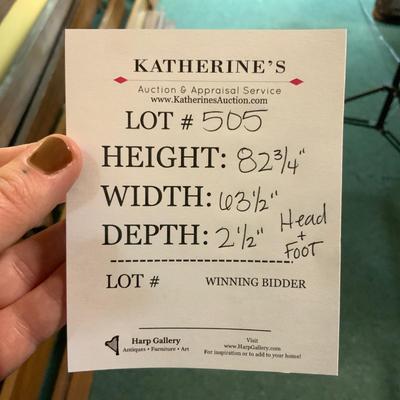 KATHERINE'S
Auction & Appraisal Service
www.KatherinesAuction.com
LOT # 505
HEIGHT: 82 3/4"
WIDTH: 63 1/2"
DEPTH: 2 1/2" Head
+
FOOT
LOT # WINNING BIDDER
Harp Gallery
Antiques • Furniture • Art
Visit
www.HarpGallery.com
For inspiration or to add to your home!